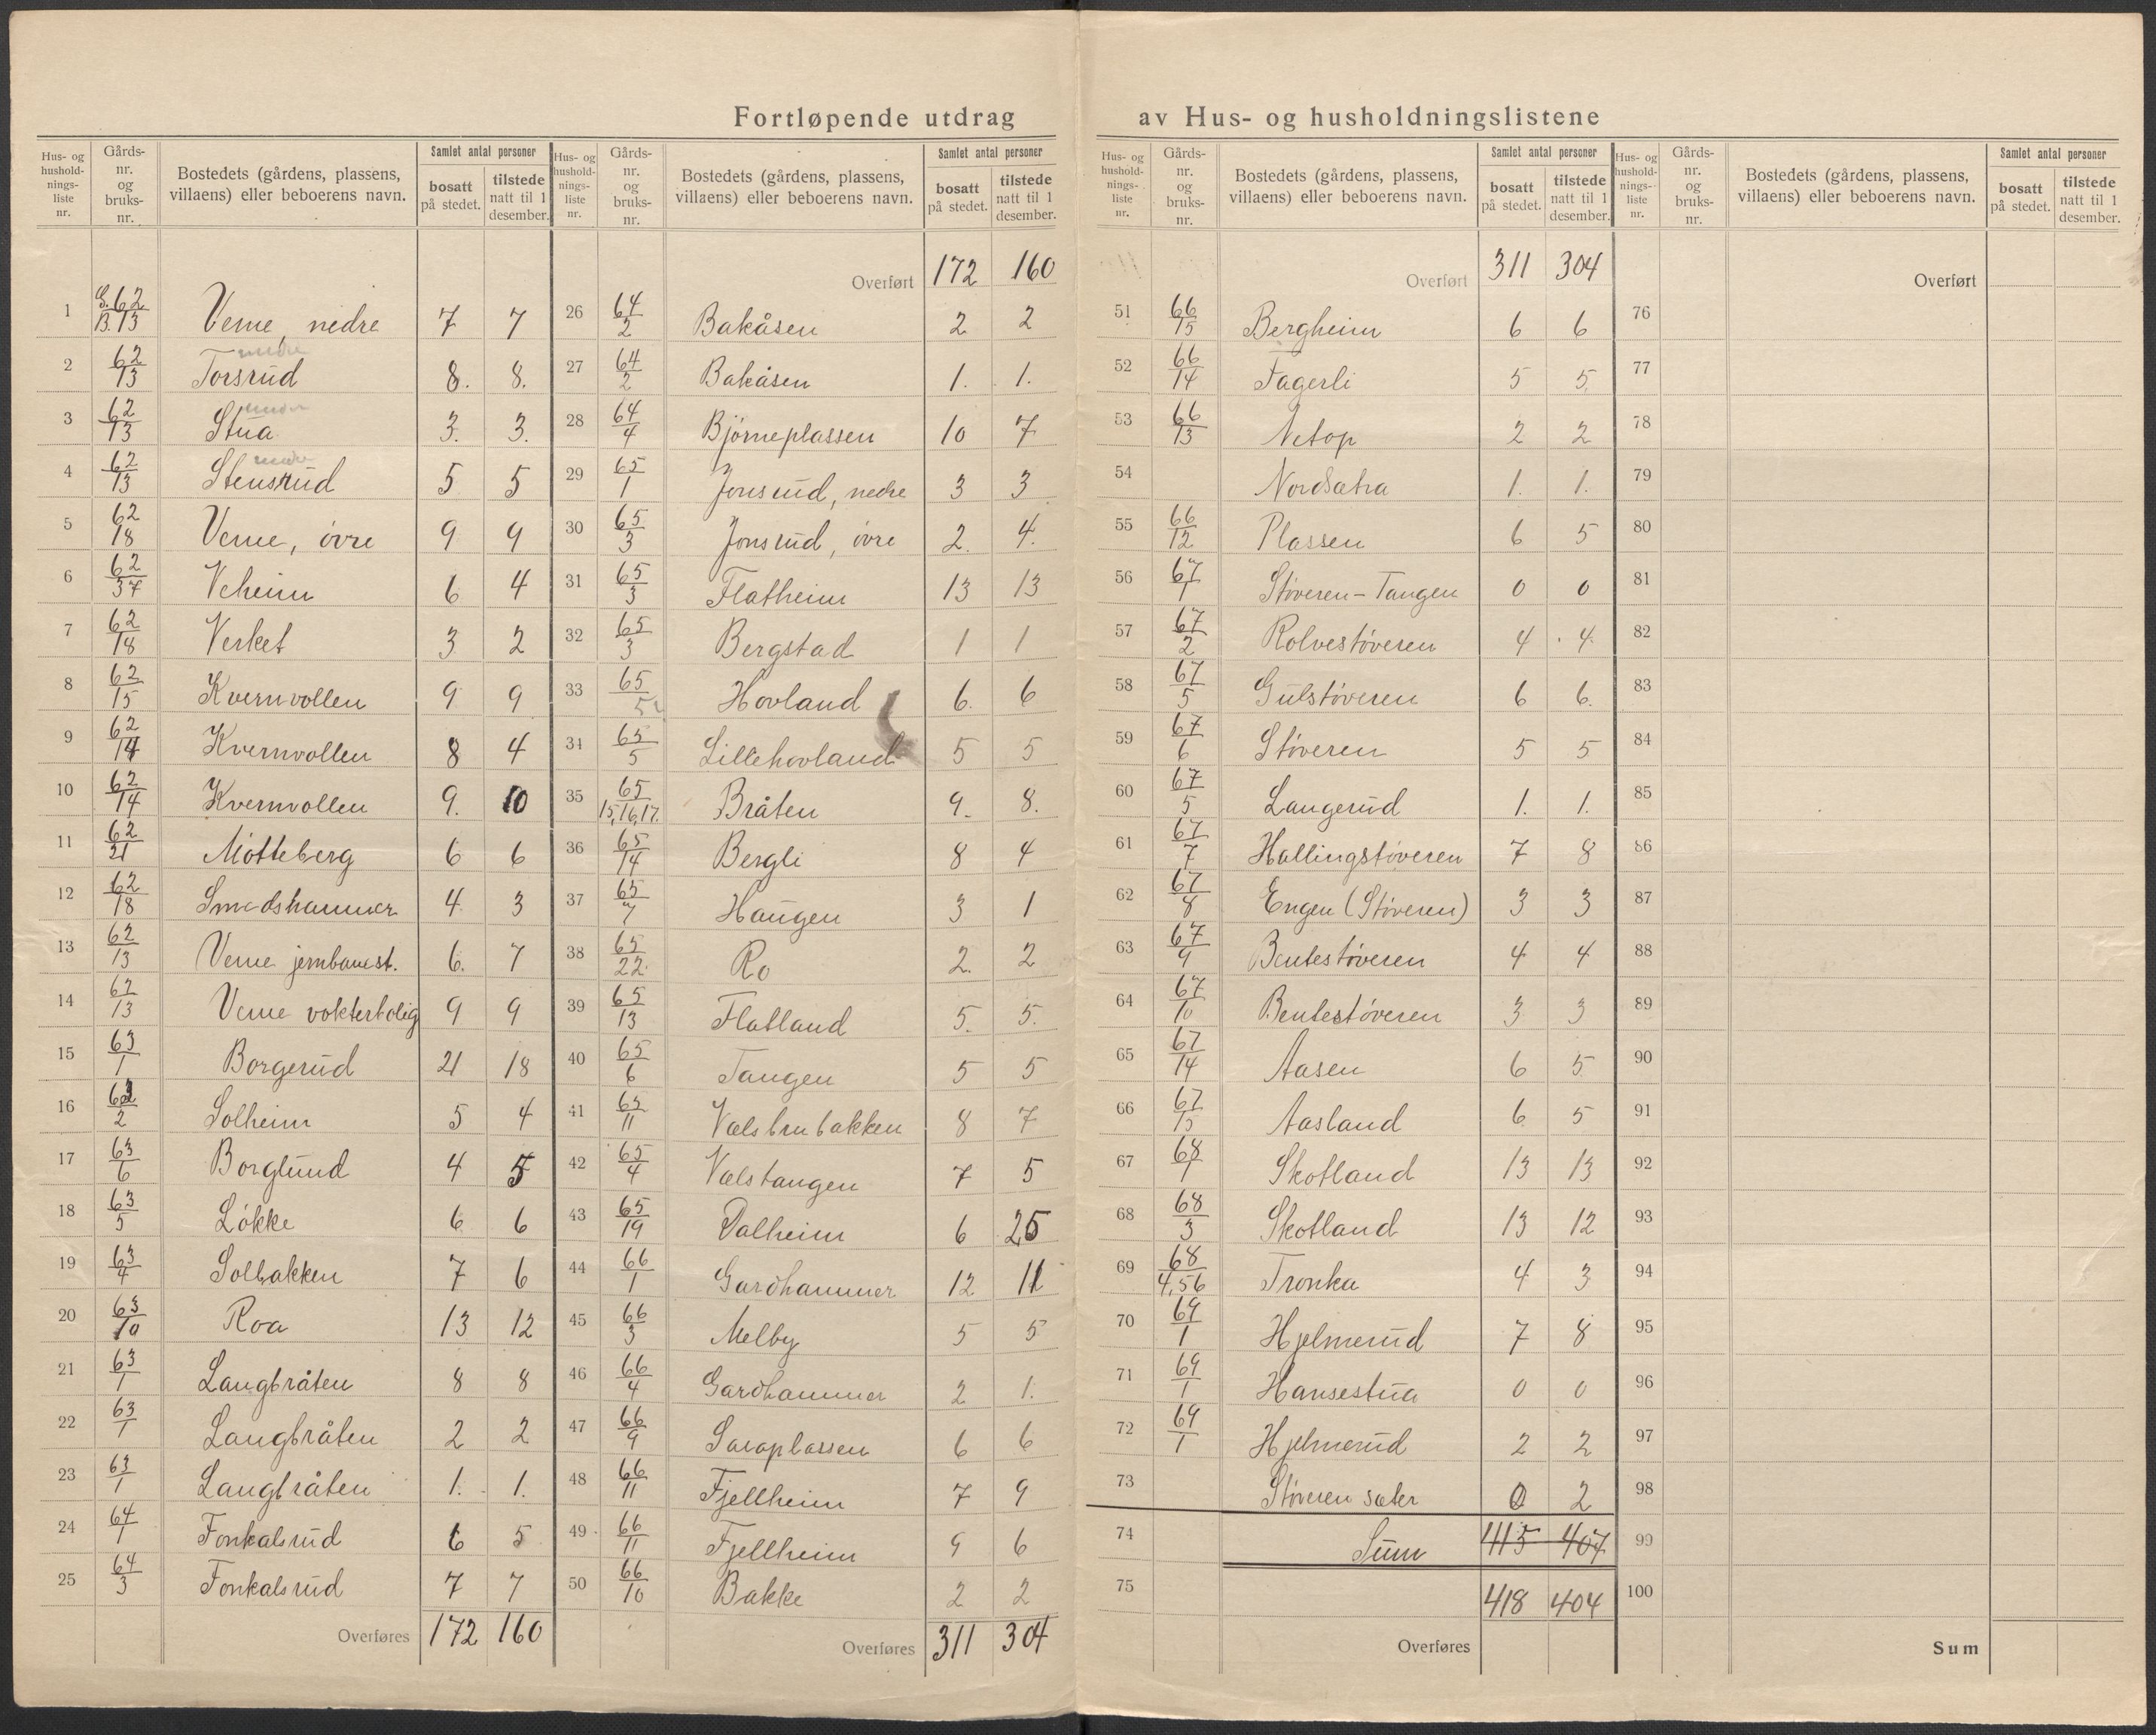 Fortløpende utdrag av Hus- og husholdningslistene
Hus- og husholdningsliste nr. | Gårdsnr. og bruksnr. | Bostedets (gårdens, plassens, villaens) eller beboerens navn. | Samlet antal personer bosatt på stedet. | tilstede natt til 1 desember.
1 G. 62 B. 13 Veme, nedre 7 7
2 62/13 Torsrud 8. 8.
3 62/13 Stua 3. 3.
4 62/13 Stensrud 5 5
5 62/18 Veme, övre 9 9
6 62/37 Veheim 6 4
7 62/18 Verket 3 2
8 62/15 Kvernvollen 9 9
9 62/14 Kvernvollen 8 4
10 62/14 Kvernvollen 9. 10
11 62/21 Motteberg 6 6
12 62/18 Smedshammer 4. 3
13 62/13 Veme jernbanest. 6. 7
14 62/13 Veme vokterbolig 9 9
15 63/1 Borgerud 21 18
16 63/2 Solheim 5 4
17 63/6 Borglund 4 5
18 63/5 Lökke 6 6
19 63/4 Solbakken 7 6
20 63/10 Roa 13 12
21 63/1 Langbråten 8 8
22 63/1 Langbråten 2 2
23 63/1 Langbråten 1. 1.
24 64/1 Fonkalsrud 6 5
25 64/3 Fonkalsrud 7 7
Overføres 172 160
Hus- og husholdningsliste nr. | Gårdsnr. og bruksnr. | Bostedets (gårdens, plassens, villaens) eller beboerens navn. | Samlet antal personer bosatt på stedet. | tilstede natt til 1 desember.
Overført 172 160
26 64/2 Bakåsen 2 2
27 64/2 Bakåsen 1. 1.
28 64/4 Björneplassen 10 7
29 65/1 Jonsrud, nedre 3 3
30 65/3 Jonsrud, övre 2. 4.
31 65/3 Flatheim 13 13
32 65/3 Bergstad 1 1
33 65/5 Hovland 6. 6
34 65/5 Lillehovland 5 5
35 65/15,16,17. Bråten 9. 8.
36 65/14 Bergli 8 4
37 65/7 Haugen 3 1
38 65/22 Ro 2. 2
39 65/13 Flatland 5. 5.
40 65/6 Tangen 5 5
41 65/11 Vælsbrubakken 8 7
42 65/4 Vælstangen 7 5
43 65/19 Dalheim 6 25
44 66/1 Gardhammer 12 11
45 66/3 Melby 5 5
46 66/4 Gardhammer 2 1.
47 66/9 Saraplassen 6 6
48 66/11 Fjellheim 7 9
49 66/11 Fjellheim 9 6
50 66/10 Bakke 2 2
Overføres 311 304
Hus- og husholdningsliste nr. | Gårdsnr. og bruksnr. | Bostedets (gårdens, plassens, villaens) eller beboerens navn. | Samlet antal personer bosatt på stedet. | tilstede natt til 1 desember.
Overført 311 304
51 66/15 Bergheim 6 6
52 66/14 Fagerli 5 5.
53 66/13 Netop 2 2
54 Nordsætra 1. 1.
55 66/12 Plassen 6 5
56 67/1 Stöveren - Tangen 0 0
57 67/2 Rolvestöveren 4 4.
58 67/5 Gulstöveren 6 6.
59 67/6 Stöveren 5 5
60 67/5 Langerud 1. 1.
61 67/7 Hallingstöveren 7 8
62 67/8 Engen (Stöveren) 3 3
63 67/9 Bentestöveren 4 4
64 67/10 Bentestöveren 3 3
65 67/14 Aasen 6 5
66 67/15 Aasland 6. 5
67 68/1 Skotland 13 13
68 68/3 Skotland 13 12
69 68/4,56 Tronka 4 3
70 69/1 Hjelmerud 7 8
71 69/1 Hansestua 0 0
72 69/1 Hjelmerud 2 2
73 Stöveren sæter 0 2
74 Sum 415 407
75 418 404
Overføres
Hus- og husholdningsliste nr. | Gårdsnr. og bruksnr. | Bostedets (gårdens, plassens, villaens) eller beboerens navn. | Samlet antal personer bosatt på stedet. | tilstede natt til 1 desember.
Overført
76
77
78
79
80
81
82
83
84
85
86
87
88
89
90
91
92
93
94
95
96
97
98
99
100
Sum